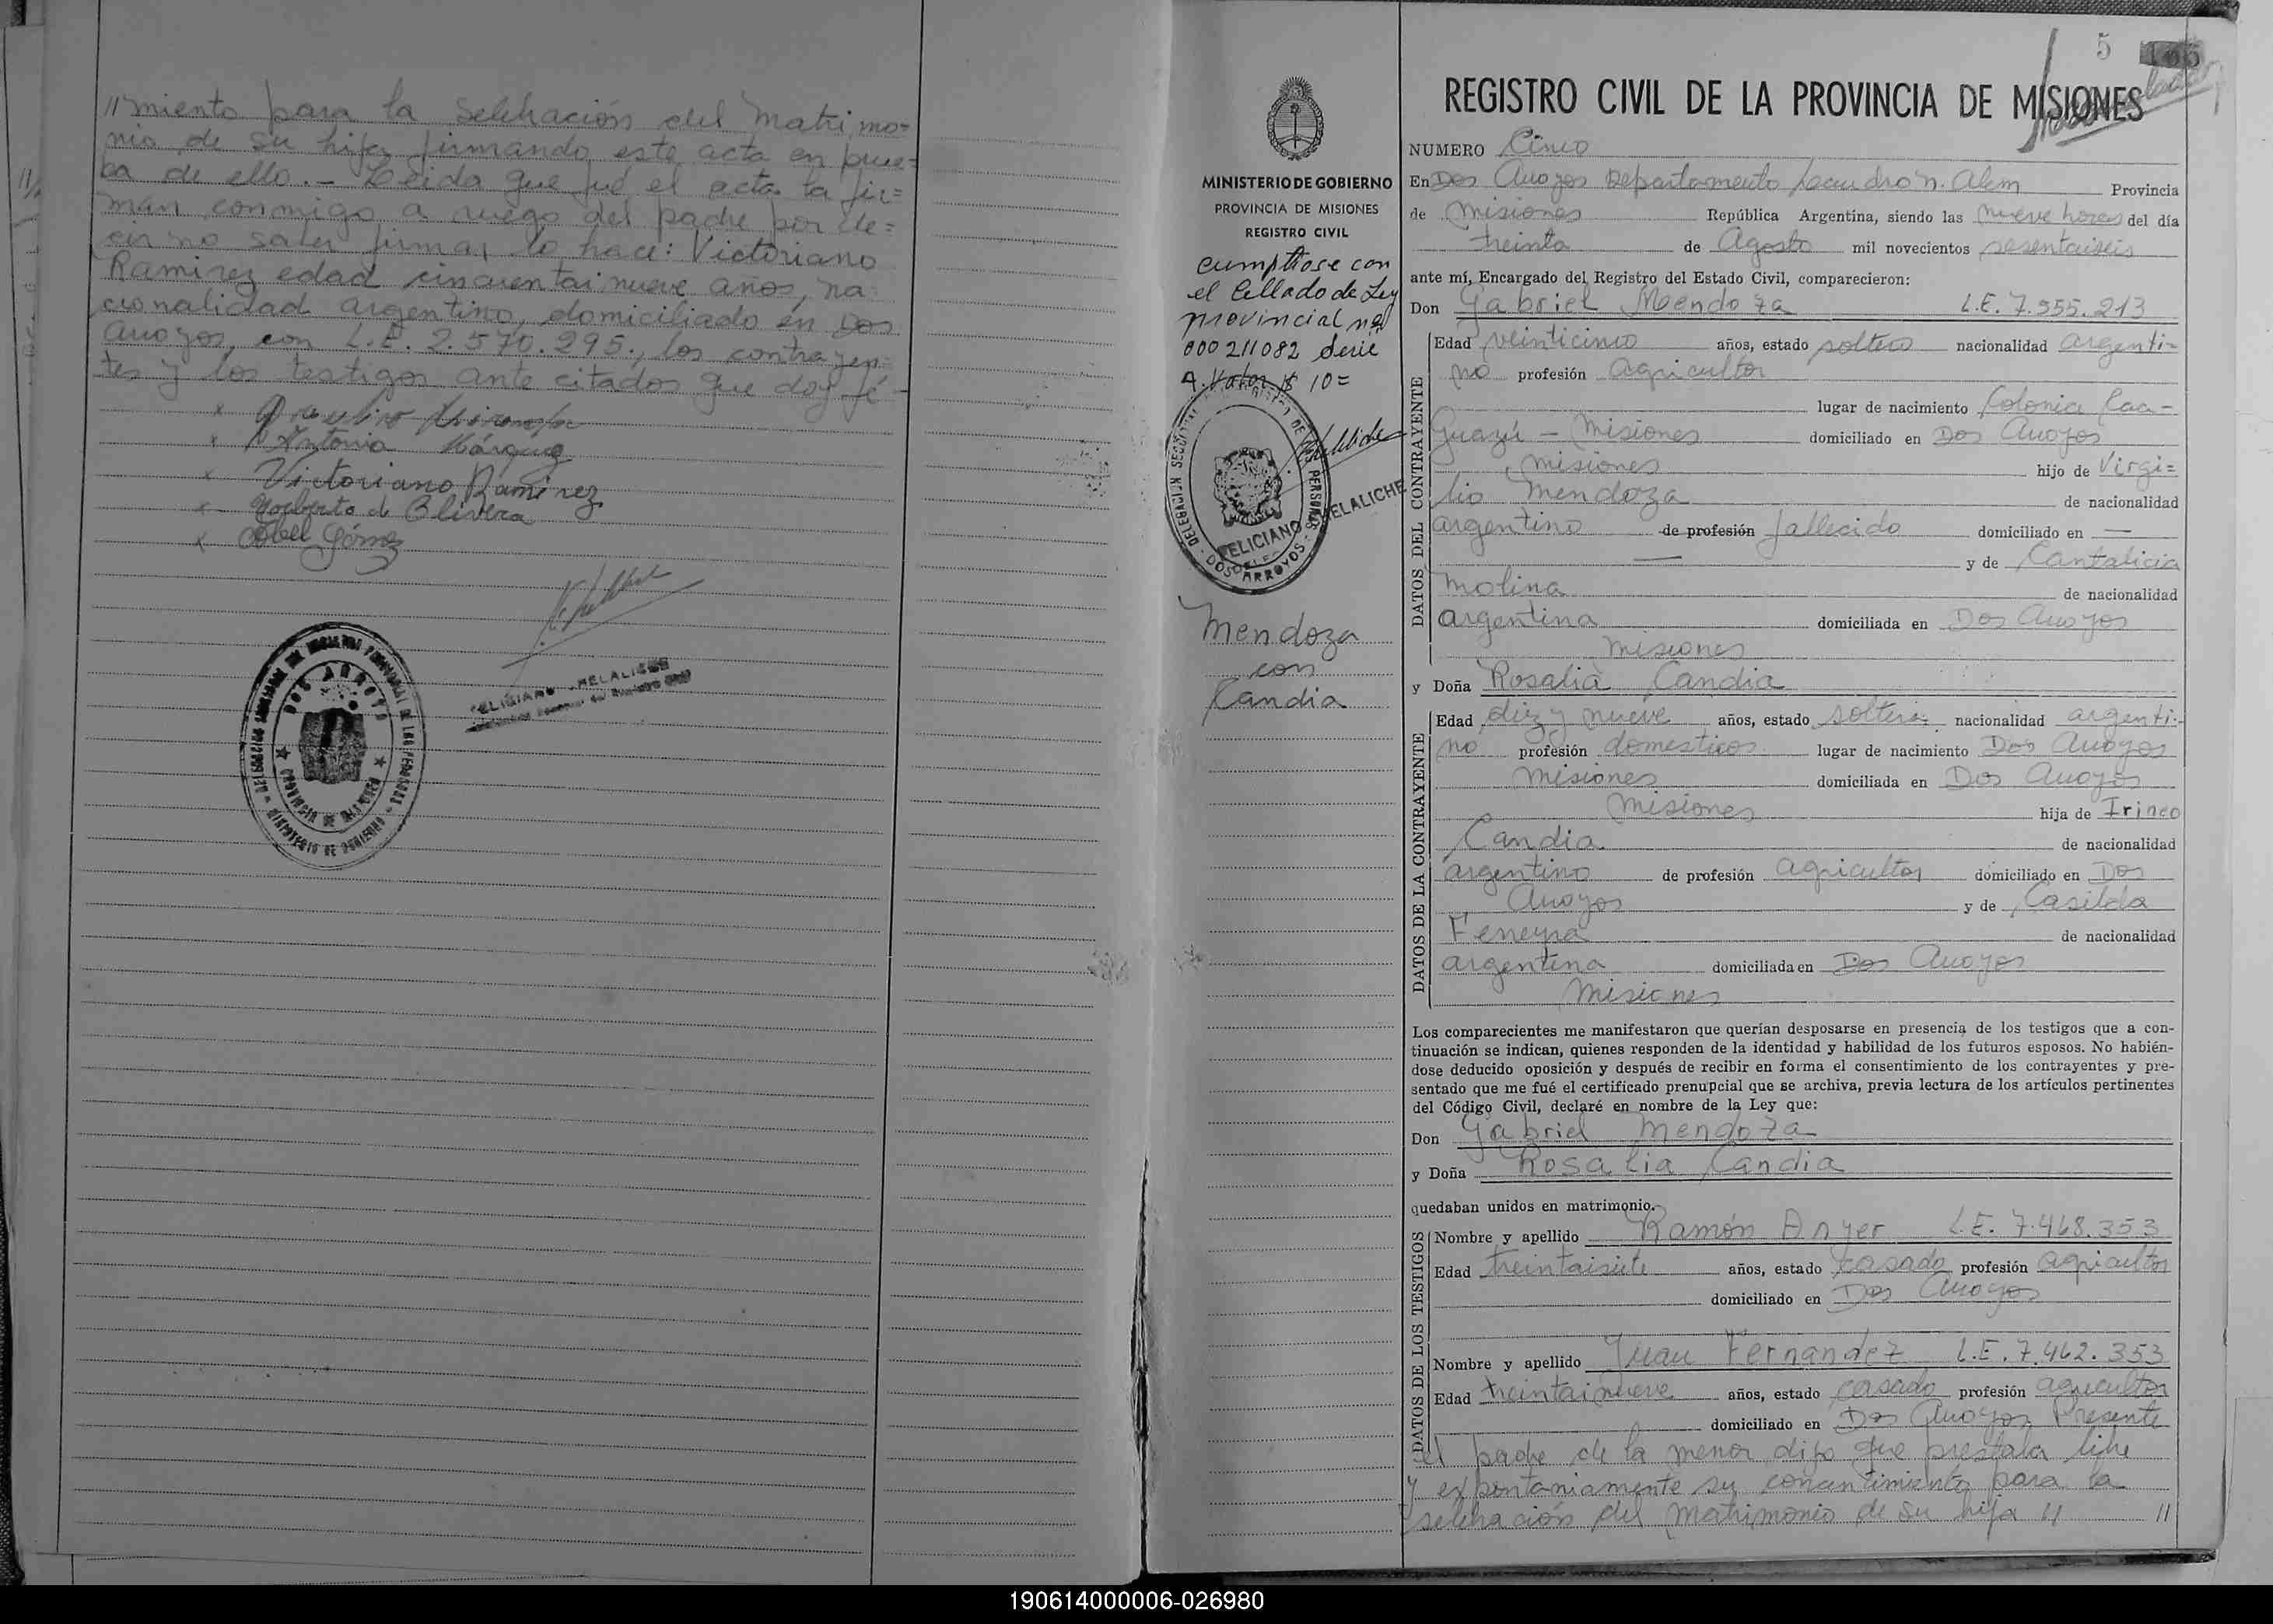 //miento para la selebración del matrimo=
nio de su hija firmando este acta en prue=
ba de ello.- Leida que fué el acta la fir=
man conmigo a ruego del padre por de=
cir no saber firmar lo hace: Victoriano
Ramirez edad cincuentainueve años, na
cionalidad argentino, domiciliado en Dos
Arroyos, con L.E. 2.570.295., los contrayen=
tes y los testigos ante citados que doy fé-
x
x Antonia Márquez
x Victoriano Ramirez
x Norberto de Olivera
x Abel Gómez
DOS ARROYOS
PROVINCIA DE MISIONES
MINISTERIO DE GOBIERNO
FELICIANO MELALICHE
5
REGISTRO CIVIL DE LA PROVINCIA DE MISIONES
MINISTERIO DE GOBIERNO
PROVINCIA DE MISIONES
REGISTRO CIVIL
cumpliose con
el sellado de Ley
provincial nº
000211082 Serie
A. Valor $ 10=
DOS ARROYOS
FELICIANO MELALICHE
Mendoza
con
Candia
NUMERO Cinco
En Dos Arroyos Departamento Leandro N. Alem Provincia
de Misiones República Argentina, siendo las nueve horas del día
treinta de Agosto mil novecientos sesentaiseis
ante mí, Encargado del Registro del Estado Civil, comparecieron:
Don Gabriel Mendoza L.E. 7.555.213
DATOS DEL CONTRAYENTE
Edad veinticinco años, estado soltero nacionalidad argenti=
no profesión Agricultor
lugar de nacimiento Colonia Caa-
Guazú - Misiones domiciliado en Dos Arroyos
Misiones hijo de Virgi=
lio Mendoza de nacionalidad
argentino de profesión fallecido domiciliado en —
— y de Cantalicia
Molina de nacionalidad
argentina domiciliada en Dos Arroyos
Misiones
y Doña Rosalia Candia
DATOS DE LA CONTRAYENTE
Edad diez y nueve años, estado soltera nacionalidad argenti=
no profesión domesticos lugar de nacimiento Dos Arroyos
Misiones domiciliada en Dos Arroyos
Misiones hija de Irineo
Candia de nacionalidad
argentino de profesión agricultor domiciliado en Dos
Arroyos y de Casilda
Ferreyra de nacionalidad
argentina domiciliada en Dos Arroyos
Misiones
Los comparecientes me manifestaron que querían desposarse en presencia de los testigos que a con-
tinuación se indican, quienes responden de la identidad y habilidad de los futuros esposos. No habién-
dose deducido oposición y después de recibir en forma el consentimiento de los contrayentes y pre-
sentado que me fué el certificado prenupcial que se archiva, previa lectura de los artículos pertinentes
del Código Civil, declaré en nombre de la Ley que:
Don Gabriel Mendoza
y Doña Rosalia Candia
quedaban unidos en matrimonio.
DATOS DE LOS TESTIGOS
Nombre y apellido Ramón Anger L.E. 7.468.353
Edad treintaisiete años, estado casado profesión agricultor
domiciliado en Dos Arroyos
Nombre y apellido Juan Fernandez L.E. 7.462.353
Edad treintainueve años, estado casado profesión agricultor
domiciliado en Dos Arroyos, Presente
el padre de la menor dijo que prestaba libre
y expontaniamente su concentimiento para la
selebración del matrimonio de su hija // //
190614000006-026980